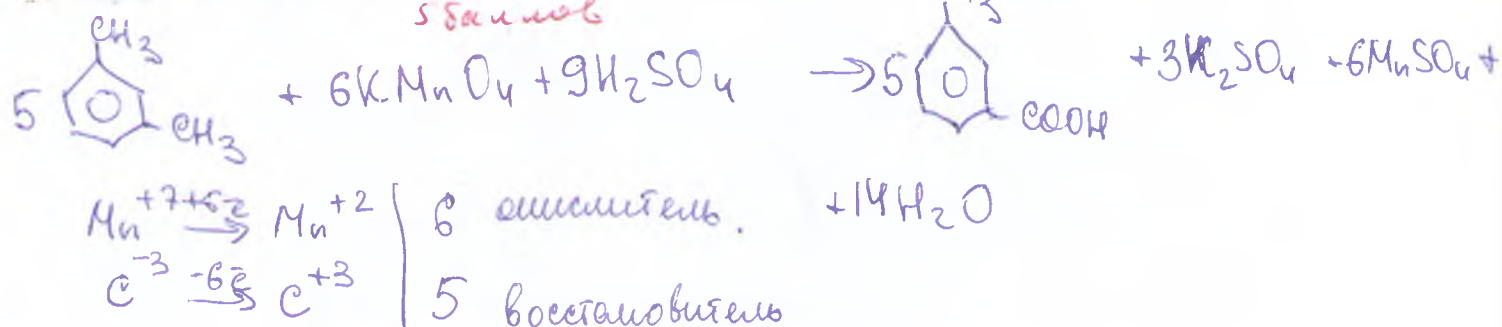 5 баллов
CH3
5 CH3 + 6KMnO4 + 9H2SO4 → 5 COOH + 3K2SO4 + 6MnSO4 +
Mn+7 +5e̅ → Mn+2 | 6 окислитель. +14H2O
C-3 -6e̅ → C+3 | 5 восстановитель